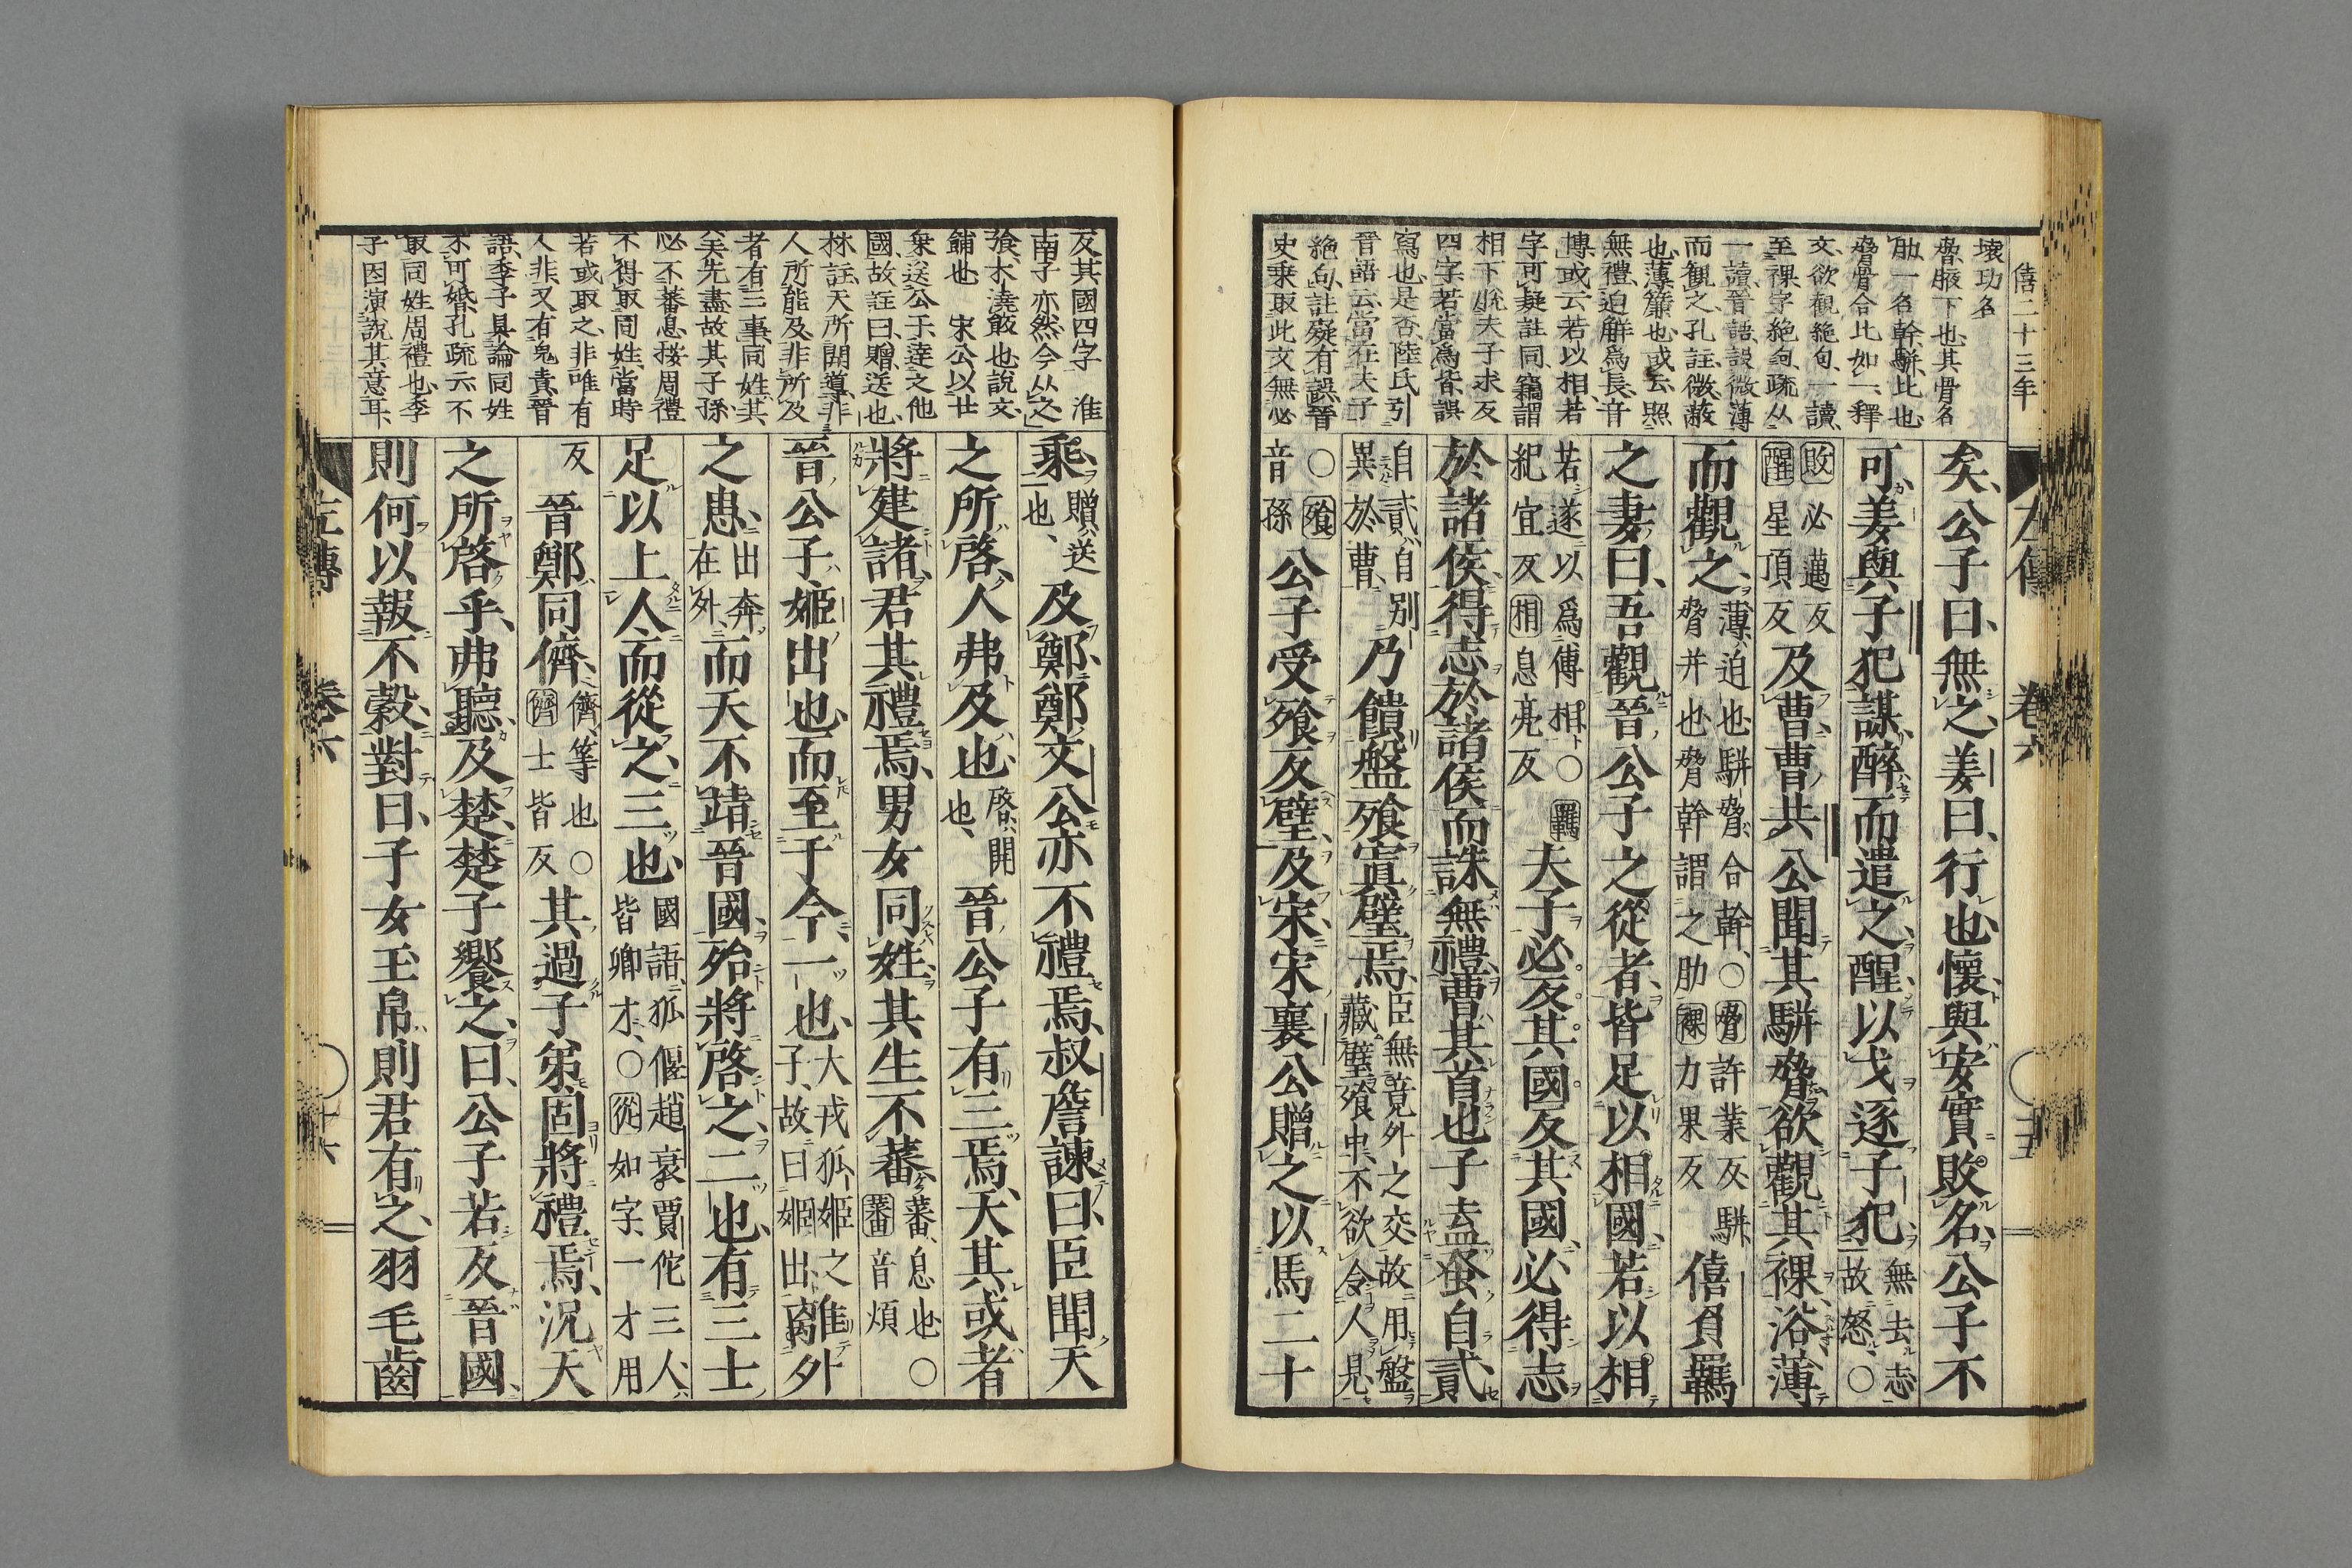 僖二十三年
左傳 卷六 ○十五
壞功名
脅腋下也其骨名
肋一名幹駢比也
脅骨合比如一釋
文欲觀絶句一讀
至裸字絶句疏从
一讀晉語設微薄
而觀之孔註微蔽
也薄簾也或云照
無禮迫解爲長音
博或云若以相若
字可疑註同竊謂
相下脱夫子求反
四字若當爲皆誤
寫也是否陸氏引
晉語云當在夫子
絶句註疑有誤晉
史乗取此文無必
矣公子曰無之姜曰行也懷與安實敗名公子不
可姜與子犯謀醉而遣之醒以戈逐子犯無去志故怒○
敗必邁反醒星頂反及曹曹共公聞其駢脅欲觀其裸浴薄
而觀之薄迫也駢脅合幹○脅許業反駢脅并也脅幹謂之肋裸力果反僖負羈
之妻曰吾觀晉公子之從者皆足以相國若以相
若遂以爲傅相○羈犯宜反相息亮反夫子必反其國反其國必得志
於諸侯得志於諸侯而誅無禮曹其首也子盍蚤自貳
自貳自別異於曹乃饋盤飱寘璧焉臣無竟外之交故用盤藏璧飱中不欲令人見
○飱音孫公子受飱反璧及宋宋襄公贈之以馬二十
反其國四字 淮
南子亦然今从之
飱木澆飯也説文
餔也 宋公以廿
乗送公子逹之他
國故註曰贈送也
林註天所開導非
人所能及非所及
者有三事同姓其
美先盡故其子孫
必不蕃息按周禮
不得取同姓當時
若或取之非唯有
人非又有鬼責晉
語季子具論同姓
不可婚孔疏云不
取同姓周禮也季
子因演説其意耳
乘贈送也及鄭鄭文公亦不禮焉叔詹諫曰臣聞天
之所啓人弗及也啓開也晉公子有三焉天其或者
將建諸君其禮焉男女同姓其生不蕃蕃息也○蕃音煩
晉公子姬出也而至于今一也大戎狐姬之子故曰姬出離外
之患出奔在外而天不靖晉國殆將啓之二也有三士
足以上人而從之三也國語狐偃趙衰賈佗三人皆卿才○從如字一才用
反晉鄭同儕儕等也○儕士皆反其過子弟固將禮焉況天
之所啓乎弗聽及楚楚子饗之曰公子若反晉國
則何以報不穀對曰子女玉帛則君有之羽毛齒
左傳 卷六 ○十六